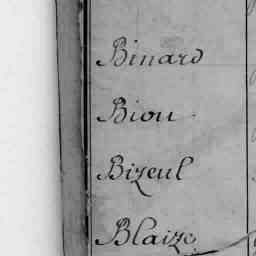 Binard
Biou
Bizeul
Blaize